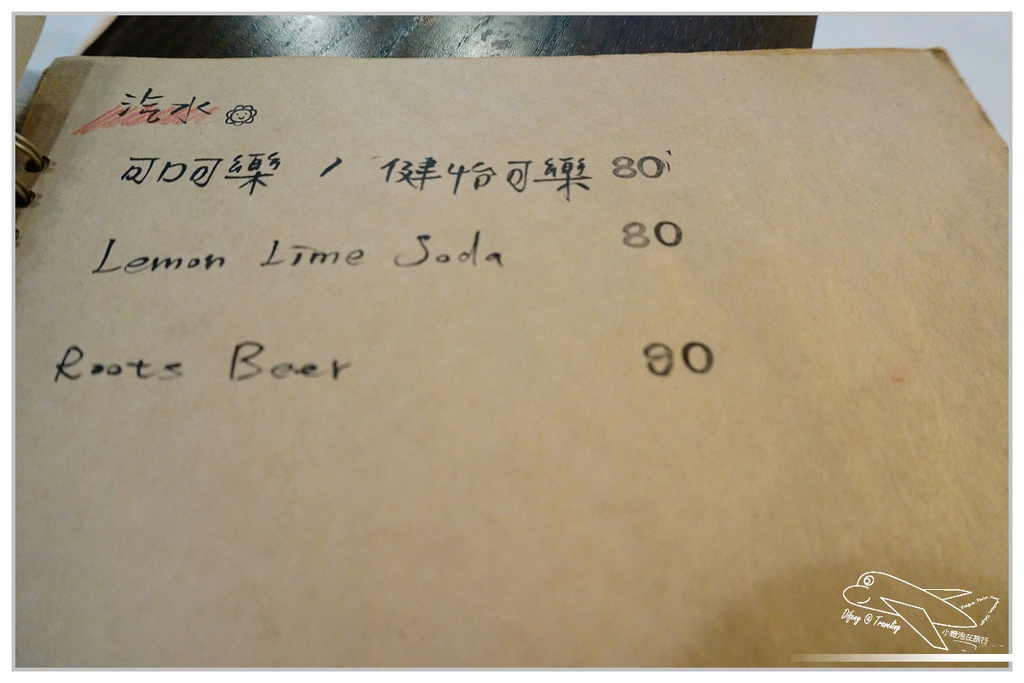 汽水
可口可樂 / 健怡可樂 80
Lemon Lime Soda 80
Roots Beer 90
Difeny @ Traveling
小腹泡在旅行